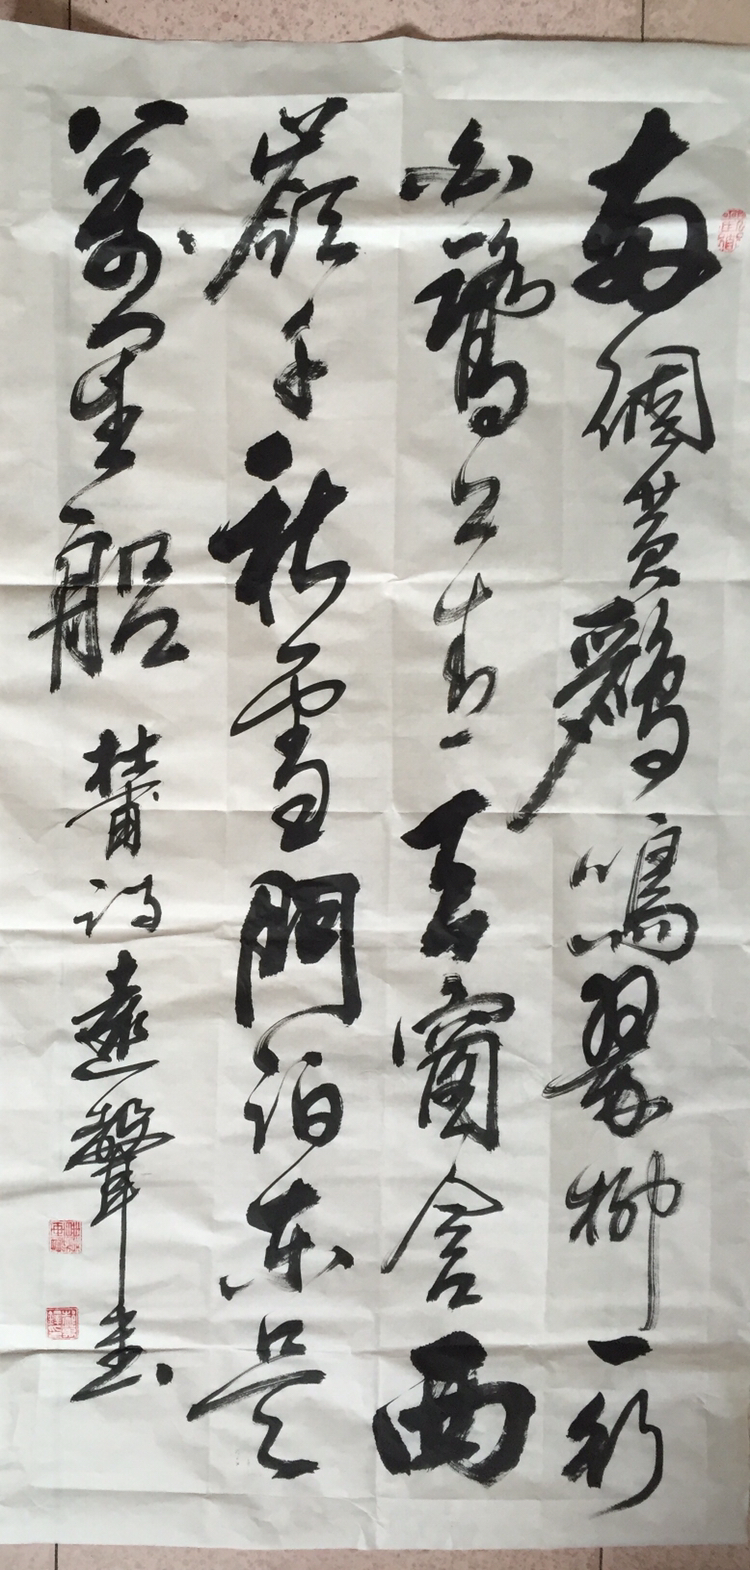 兩個黃鸝鳴翠柳一行
白鷺上青天窗含西
嶺千秋雪門泊東吳
萬里船 杜甫詩 遠聲書